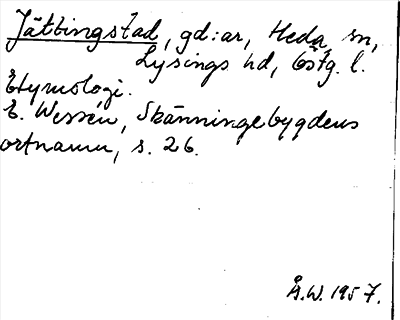 Jättingstad, gd:ar, Heda sn,
Lysings hd, Östg. l.
Etymologi.
E. Wessén, Skänningebygdens
ortnamn, s. 26.
Å.W. 1957.